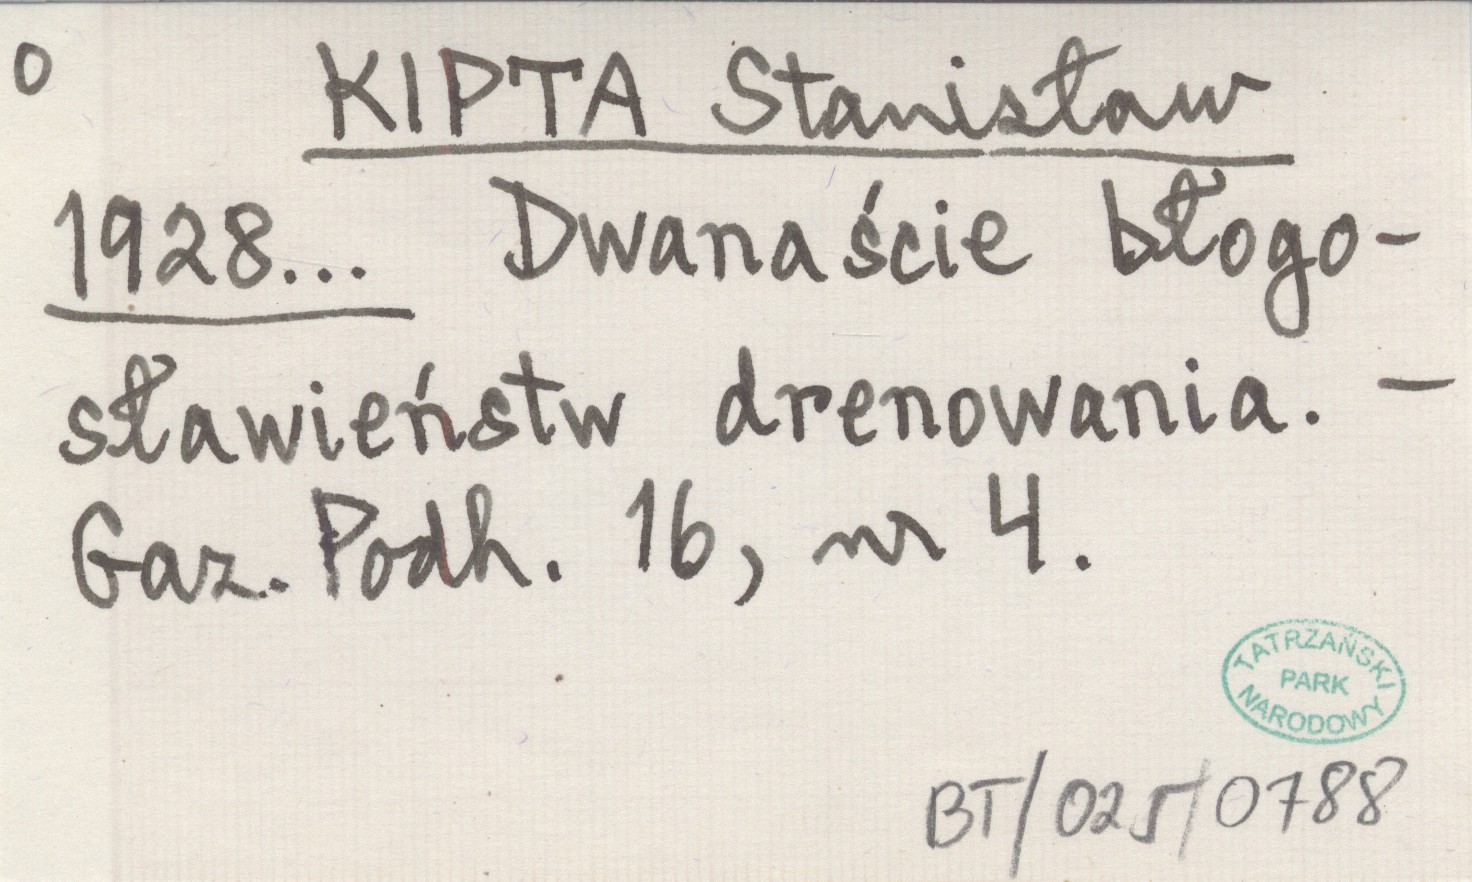 o KIPTA Stanisław
1928... Dwanaście błogo-
sławieństw drenowania. –
Gaz. Podh. 16, nr 4.
TATRZAŃSKI
PARK
NARODOWY
BT/025/0788